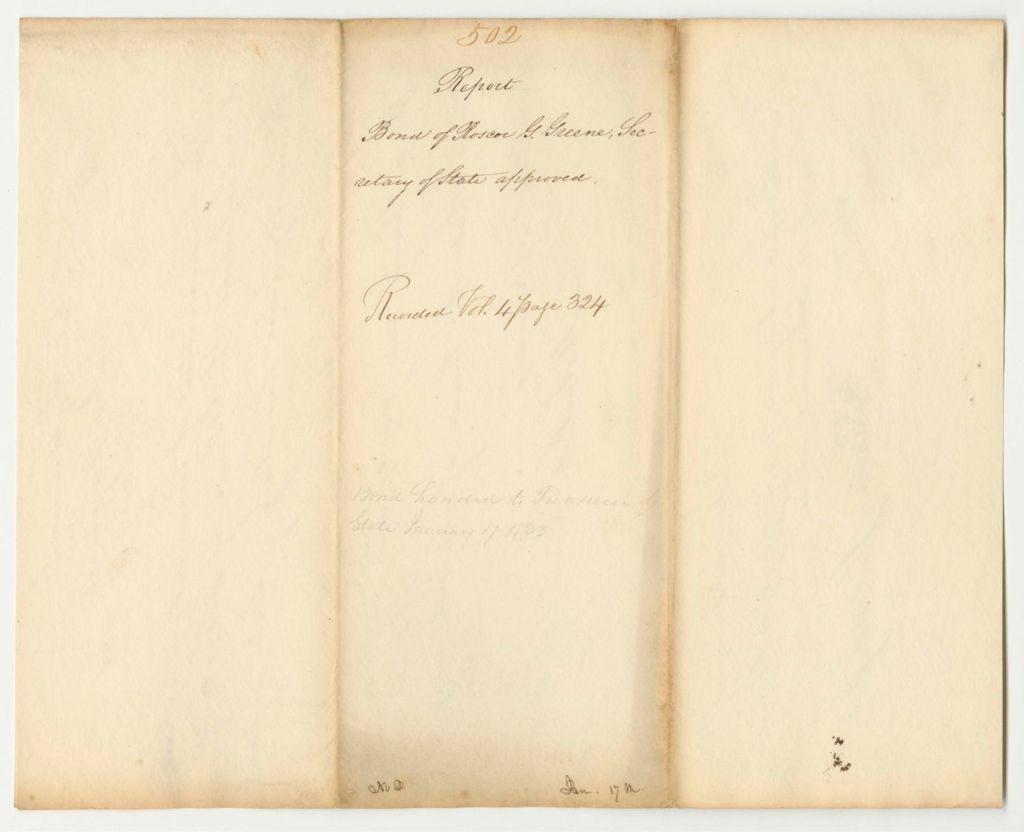 502
Report
Bond of Roscoe G. Greene, Sec-
retary of State approved.
Recorded Vol. 4 page 324
Bond handed to Treasurer of
State January 17. 1833
No 2
Jan. 17th